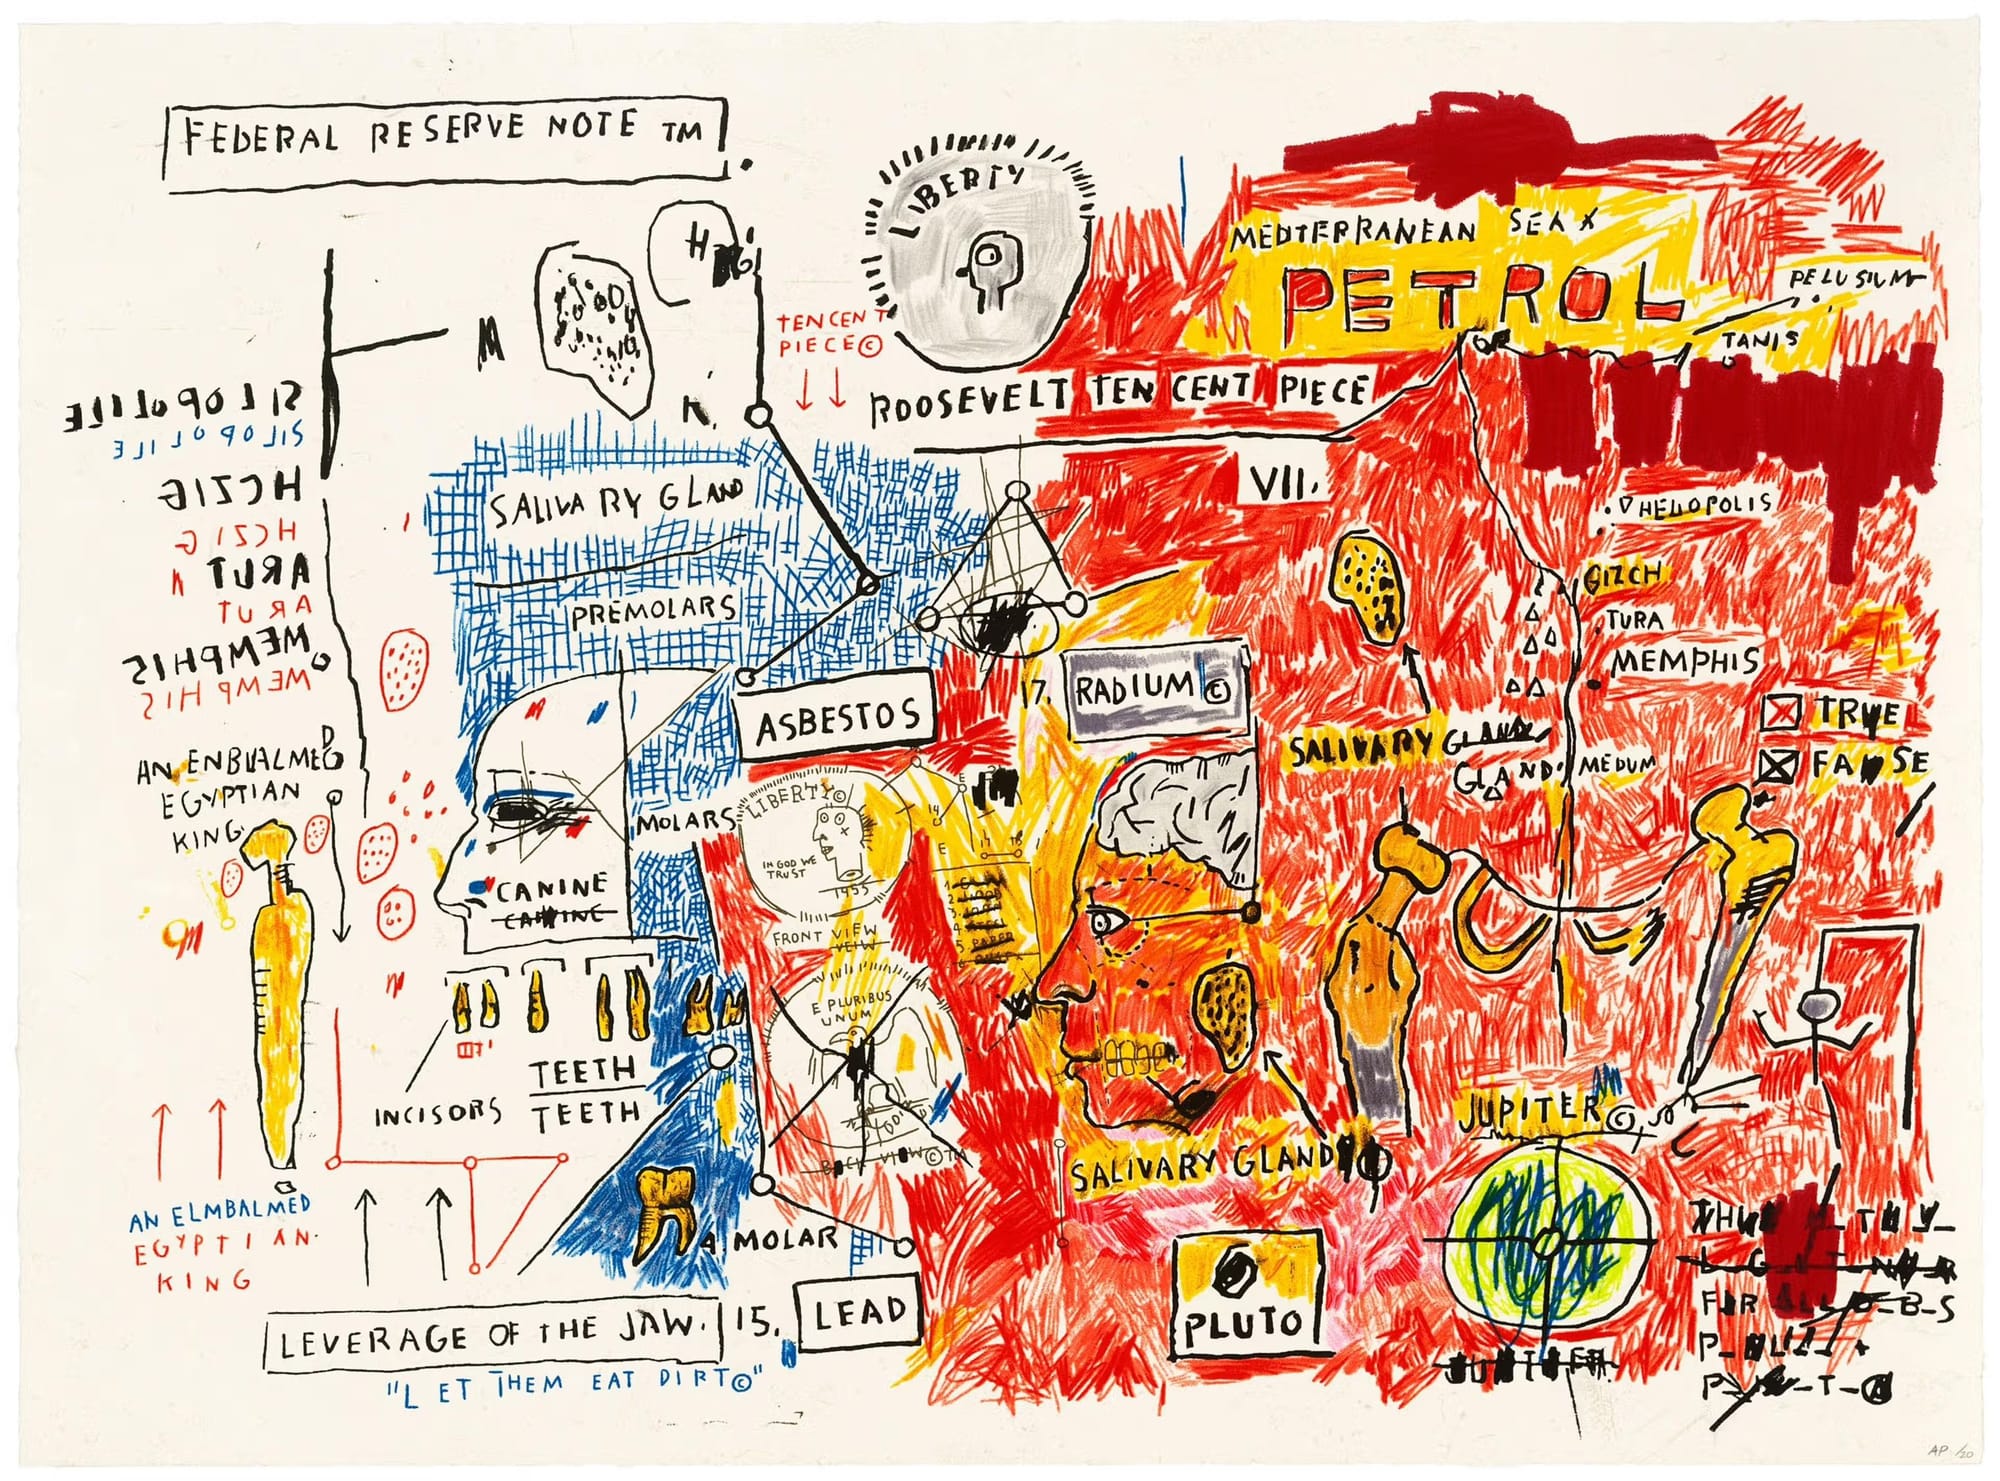 FEDERAL RESERVE NOTE TM
LIBERTY
H
M
K.
TEN CENT
PIECE©
ROOSEVELT TEN CENT PIECE
MEDTERRANEAN SEA X
PETROL
PELUSIUM
TANIS
OR
VII.
SILOPOLILE
SILOPOLILE
HCZIG
HCZIG
ARUT
ARUT
MEMPHIS
MEMPHIS
SALIVARY GLAND
PREMOLARS
ASBESTOS
17. RADIUM ©
HELIOPOLIS
GIZCH
TURA
MEMPHIS
MEDUM
SALIVARY GLAND
GLAND
TRUE
FALSE
AN ENBLALMED
EGYPTIAN
KING
MOLARS
CANINE
CANINE
LIBERTY©
IN GOD WE
TRUST
1955
FRONT VIEW
VEIW
E PLURIBUS
UNUM
BACK VIEW©TM
5. PAPER
INCISORS
TEETH
TEETH
SALIVARY GLAND
JUPITER©
AN ELMBALMED
EGYPTIAN.
KING
MOLAR
LEVERAGE OF THE JAW.
15. LEAD
"LET THEM EAT DIRT©"
PLUTO
JUPITER
AP /20